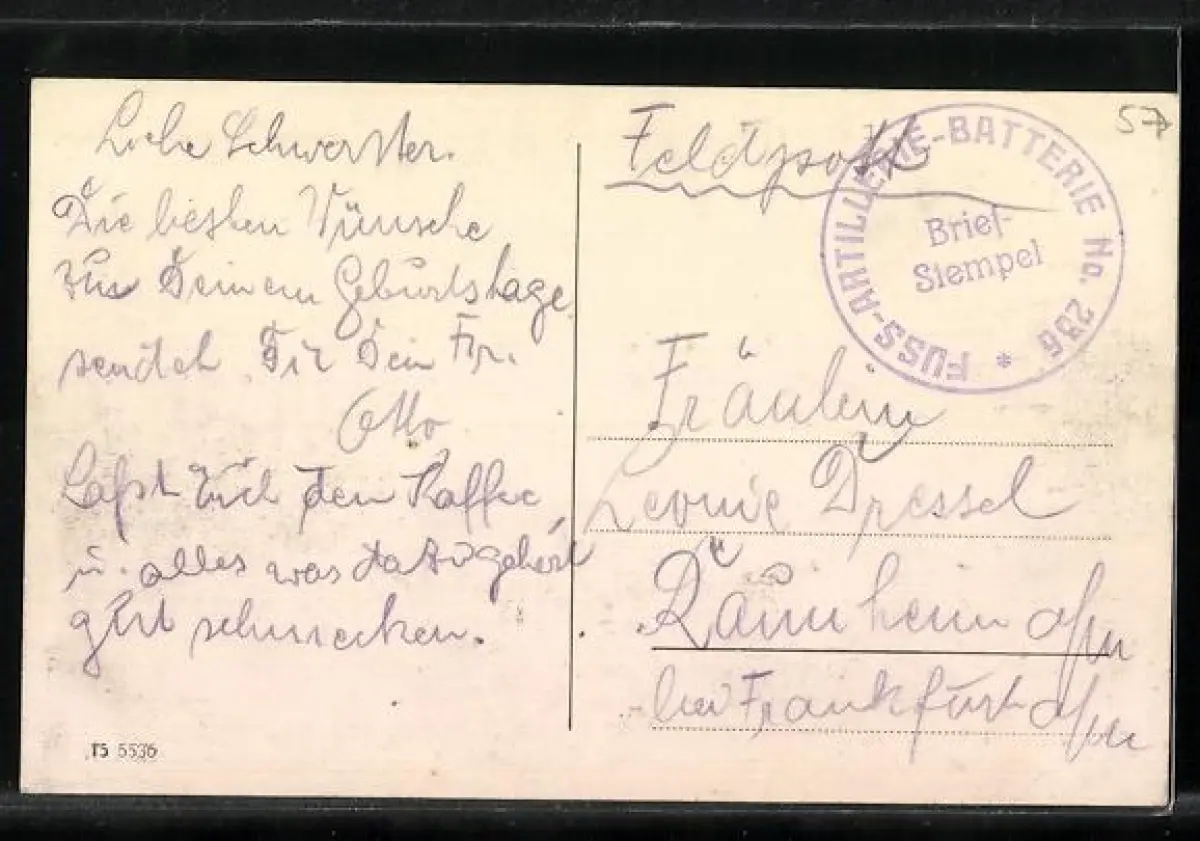 Liebe Schwester.
Die besten Wünsche
zu Deinem Geburtstage
sendet Dir Dein Br.
Otto
Laßt Euch den Kaffee
u. alles was dazugehört
gut schmecken.
TS 5536
57
Feldpost
FUSS-ARTILLERIE-BATTERIE No. 236 *
Brief-
Stempel
Fräulein
Leonie Dressel
Raunheim a/M
bei Frankfurt a/M